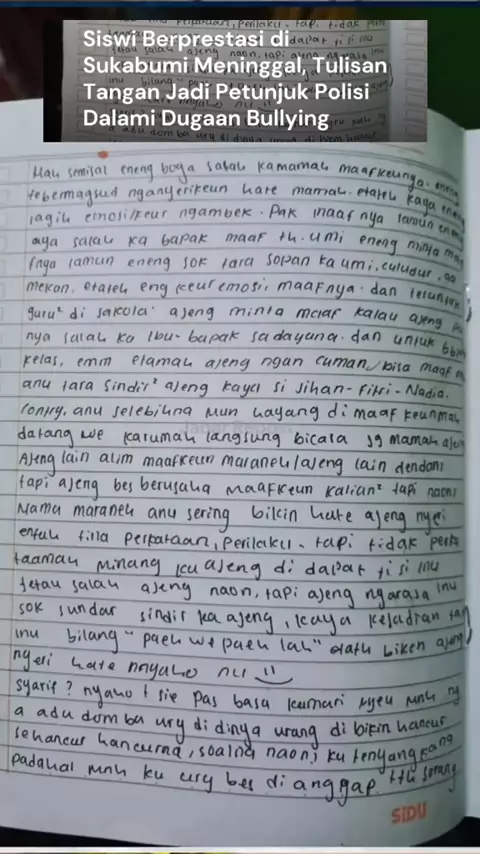 Siswi Berprestasi di
Sukabumi Meninggal, Tulisan
Tangan Jadi Petunjuk Polisi
Dalami Dugaan Bullying
Mah semisal eneng boga salah kamamah maafkeunya. eneng
tebermagsud nganyerikeun hate mamah. etateh kaya eneng
lagih emosi/keur ngambek. Pak maaf nya lamun eneng
aya salah ka bapak maaf th. umi eneng minta ma
fnya lamun eneng sok tara sopan ka umi, culudur,
mekan, etateh eng keur emosi, maafnya. dan
guru² di sakola ajeng minta maaf kalau ajeng
nya salah ka Ibu-bapak sadayana. dan untuk
kelas, emm etamah ajeng ngan cuman bisa maaf
anu tara sindir² ajeng kaya si Jihan-Fitri-Nadia.
anu selebihna mun hayang di maaf keunmah
datang we karumah langsung bicara sg mamah ajeng
Ajeng lain alim maafkeun maraneh/ajeng lain dendam
tapi ajeng bes berusaha maafkeun kalian² tapi naon
Nama maraneh anu sering bikin hate ajeng nyeri
entah tina perkataan, perilaku. tapi tidak
taamah minang ku ajeng di dapat ti si inu
tetau salah ajeng naon, tapi ajeng ngarasa inu
sok sundar sindir ka ajeng, kaya kejadian
inu bilang "paeh we paeh lah" etath biken ajeng
nyeri hate nnyaho nu
syarif? nyaho t sie pas basa kumari nyeu mnh
a adu domba ury di dinya urang di bikin hancur
sehancur hancurna, soalna naon, ku tenyangkang
padahal mnh ku ury bes di anggap tth sorang
SIDU